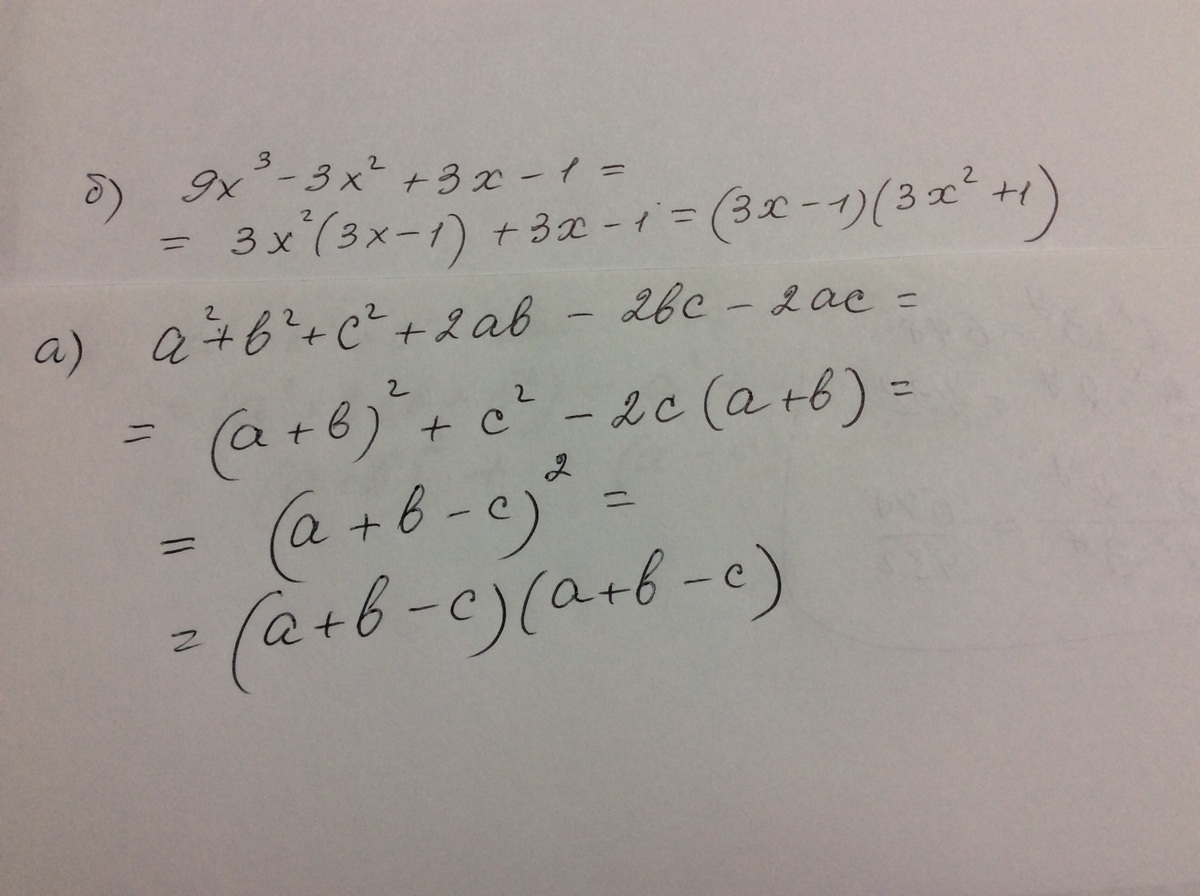 б) 9x³ - 3x² + 3x - 1 =
= 3x²(3x - 1) + 3x - 1 = (3x - 1)(3x² + 1)
а) a² + b² + c² + 2ab - 2bc - 2ac =
= (a + b)² + c² - 2c (a + b) =
= (a + b - c)² =
= (a + b - c)(a + b - c)